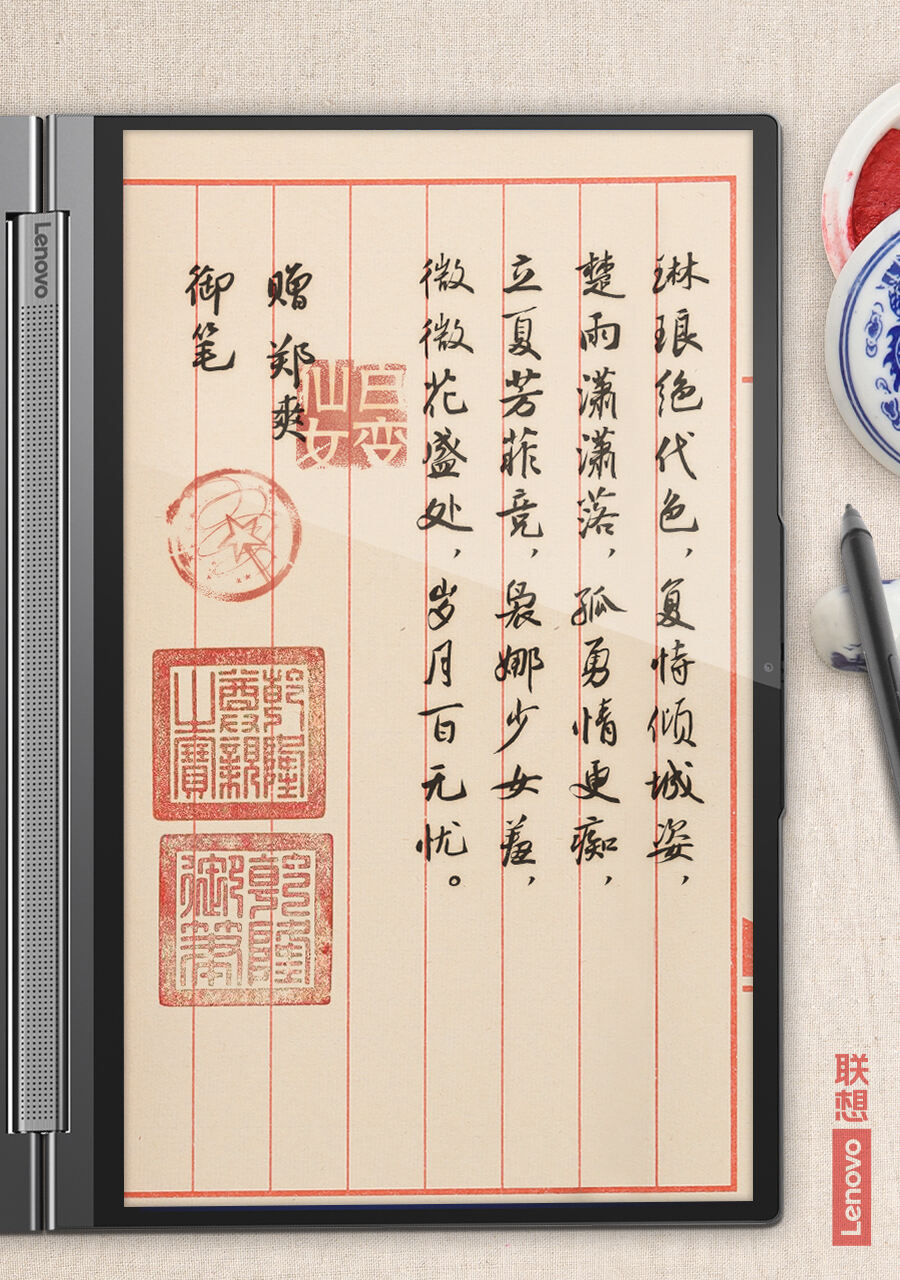 琳琅绝代色，复恃倾城姿，
楚雨潇潇落，孤勇情更痴，
立夏芳菲竞，袅娜少女羞，
微微花盛处，岁月百无忧。
赠 郑爽
御笔
乾隆御笔
Lenovo
联想
Lenovo